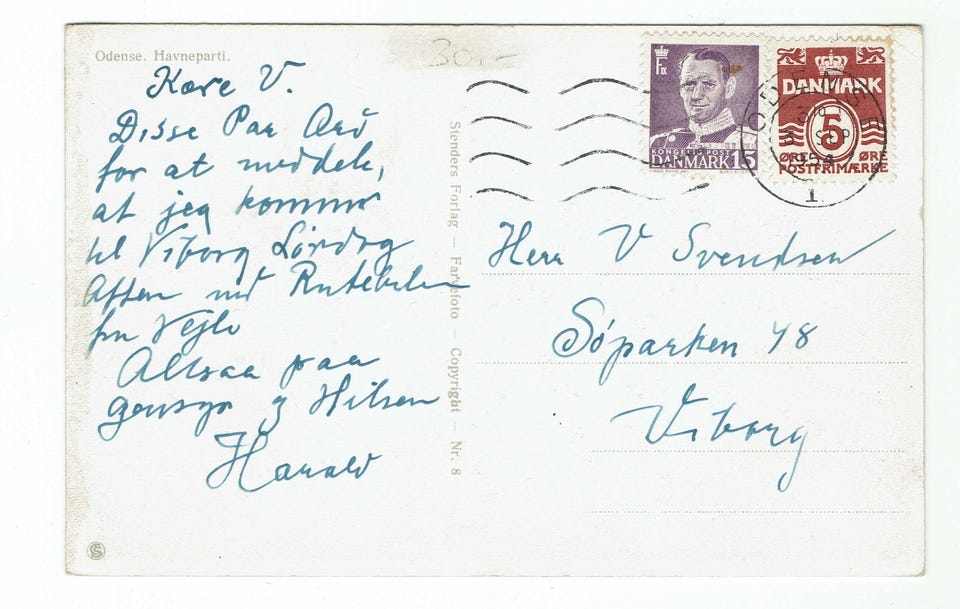 Odense. Havneparti.
30,-
Kære V.
Disse Par Ord
for at meddele,
at jeg kommer
til Viborg Lørdag
Aften med Rutebilen
fra Vejle
Altsaa paa
Gensyn og Hilsen
Harald
Stenders Forlag — Farvefoto — Copyright — Nr. 8
KONGELIG POST
DANMARK 15
DANMARK
5
ØRE ØRE
POSTFRIMÆRKE
ODENSE
SEP
1954
1
Herr V Svendsen
Søparken 48
Viborg
S